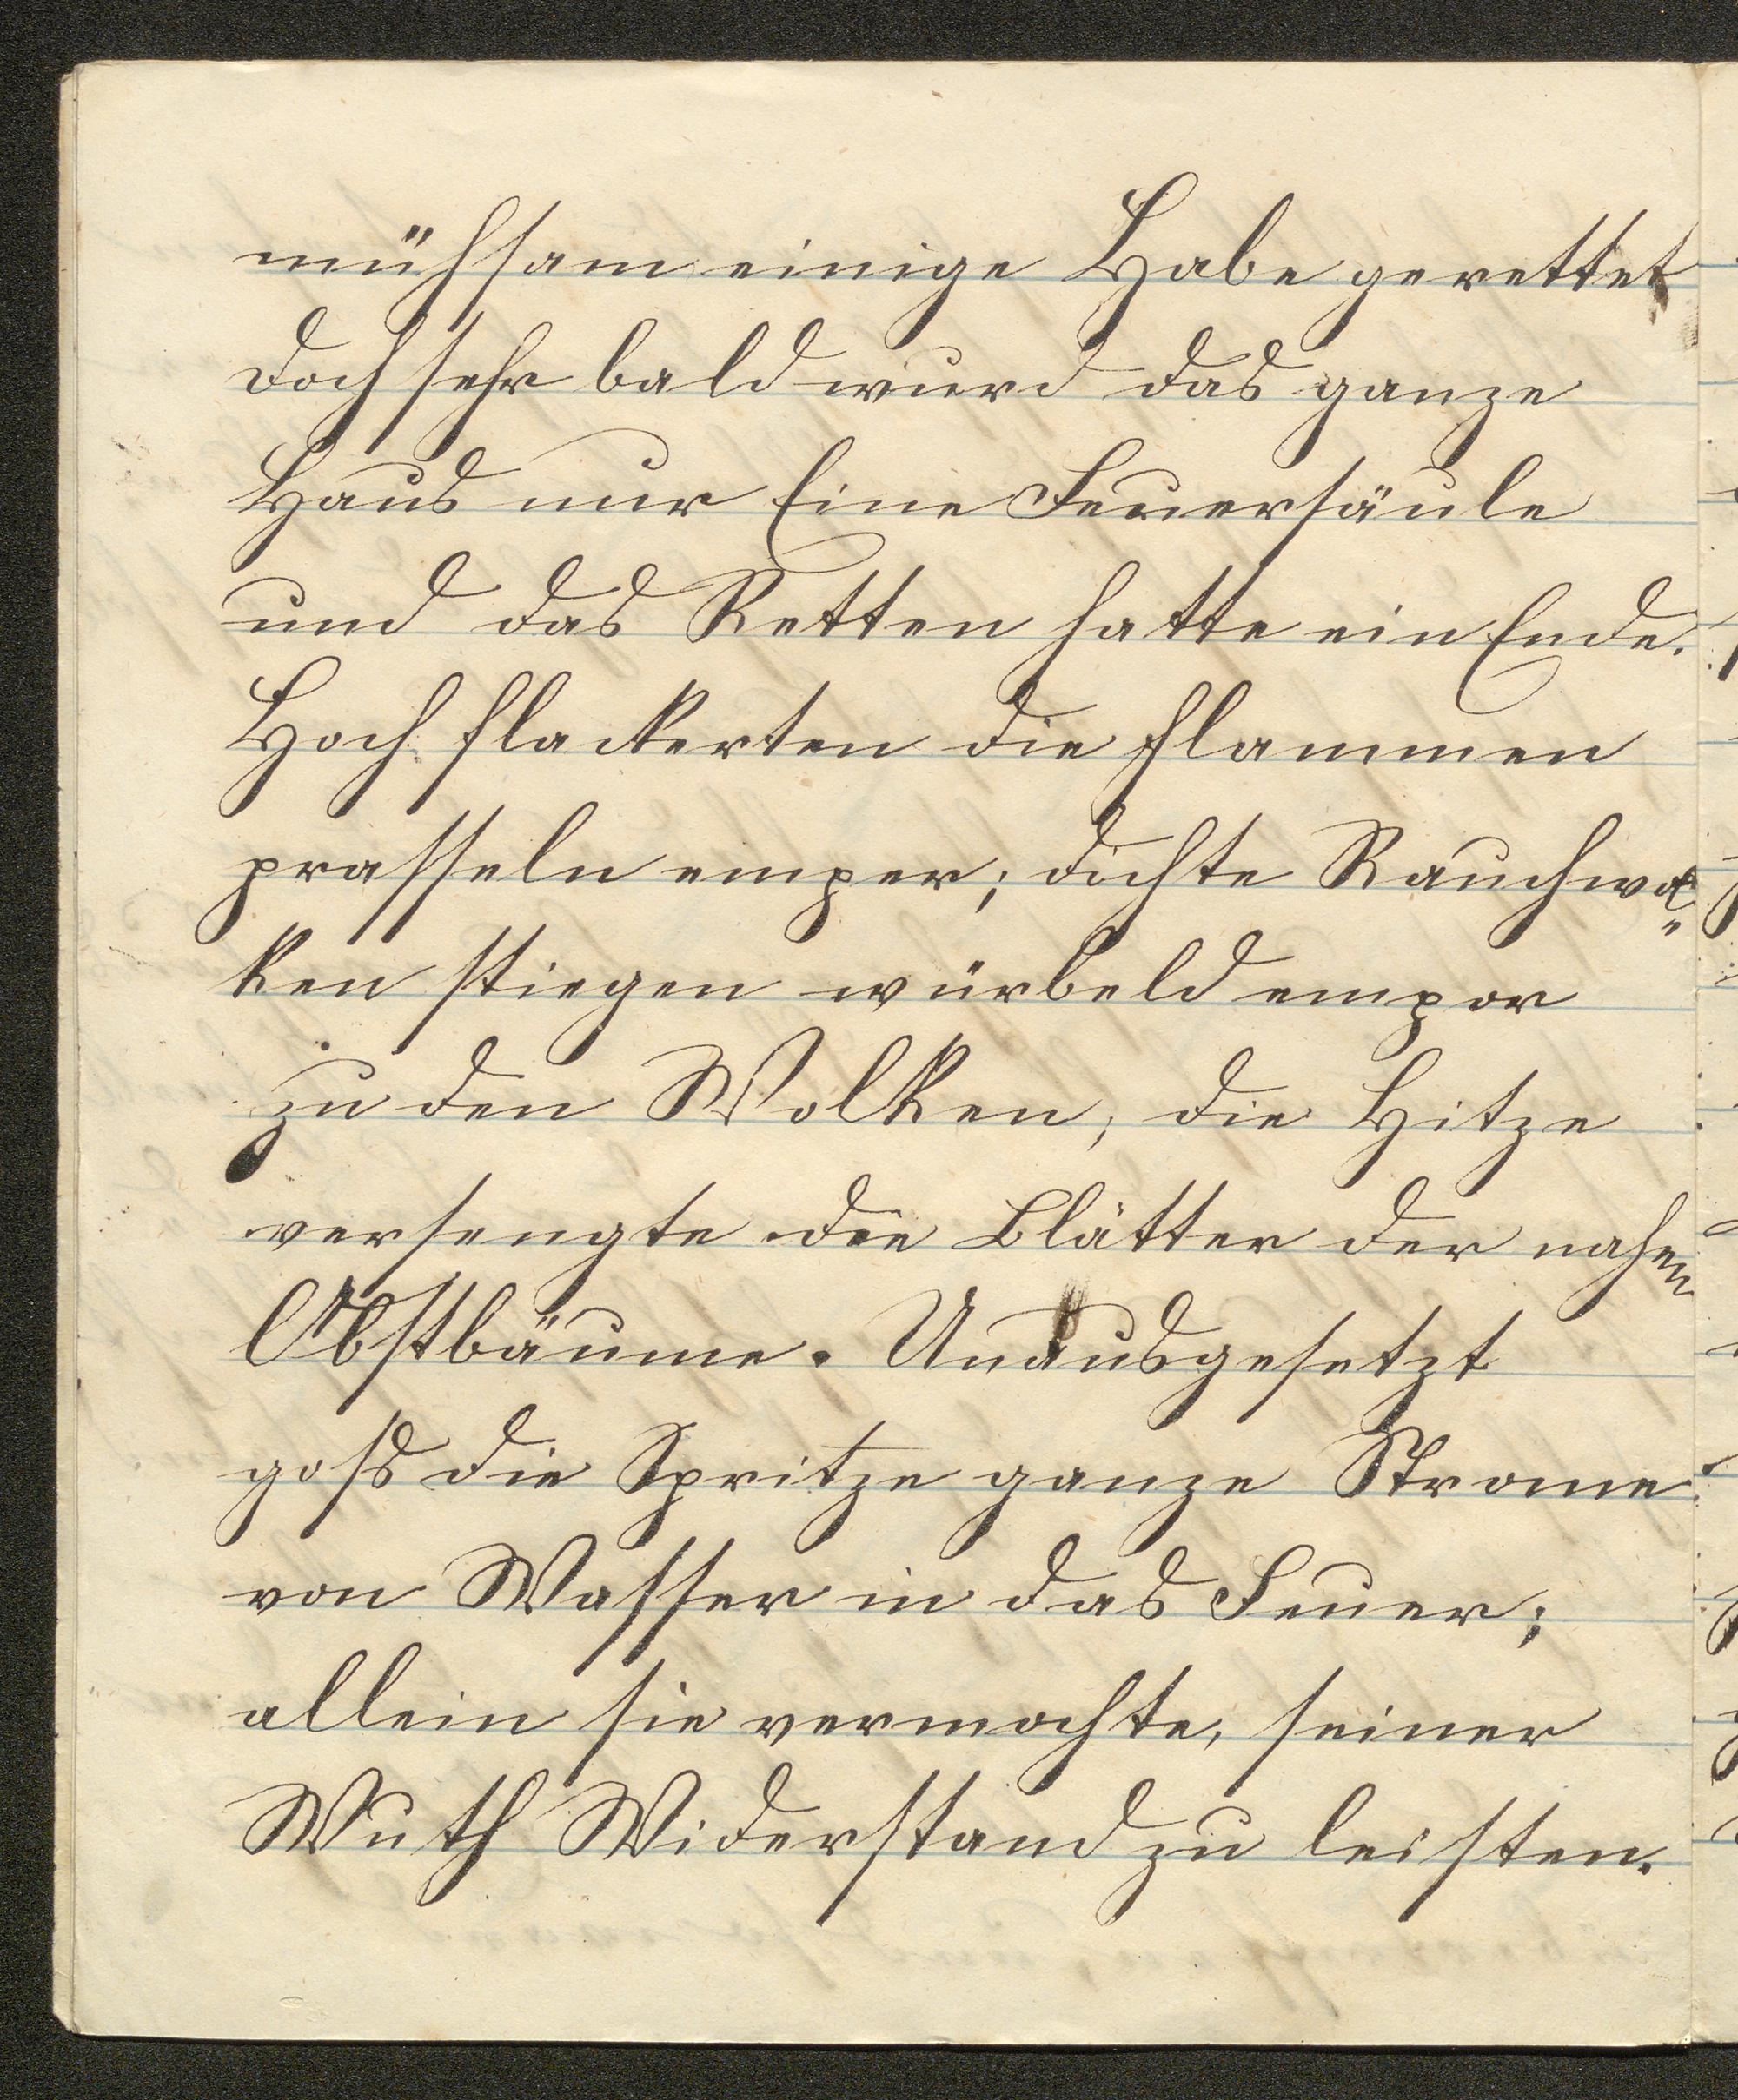 mühsam einige Habe gerettet
doch sehr bald wurd das ganze
Haus nur Eine Feuersäule
und das Retten hatte ein Ende.
Hoch flackerten die Flammen
prasseln emper; dichte Rauchwol⸗
ken stiegen würbeld empor
zu den Wolken, die Hitze
versengte die Blätter der nahen
Obstbäume. Unausgesetzt
goß die Spritze ganze Strome
von Wasser in das Feuer;
allein sie vermochte, seiner
Wuth Widerstand zu leisten.